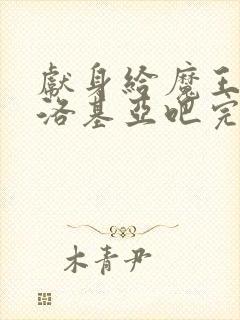 獻身給魔王
洛基亞吧完
木青尹